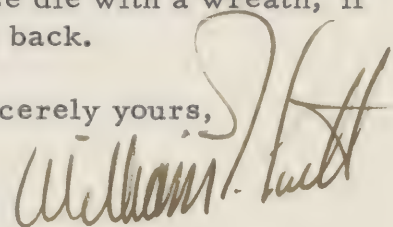 se die with a wreath, if
back.
cerely yours,
William